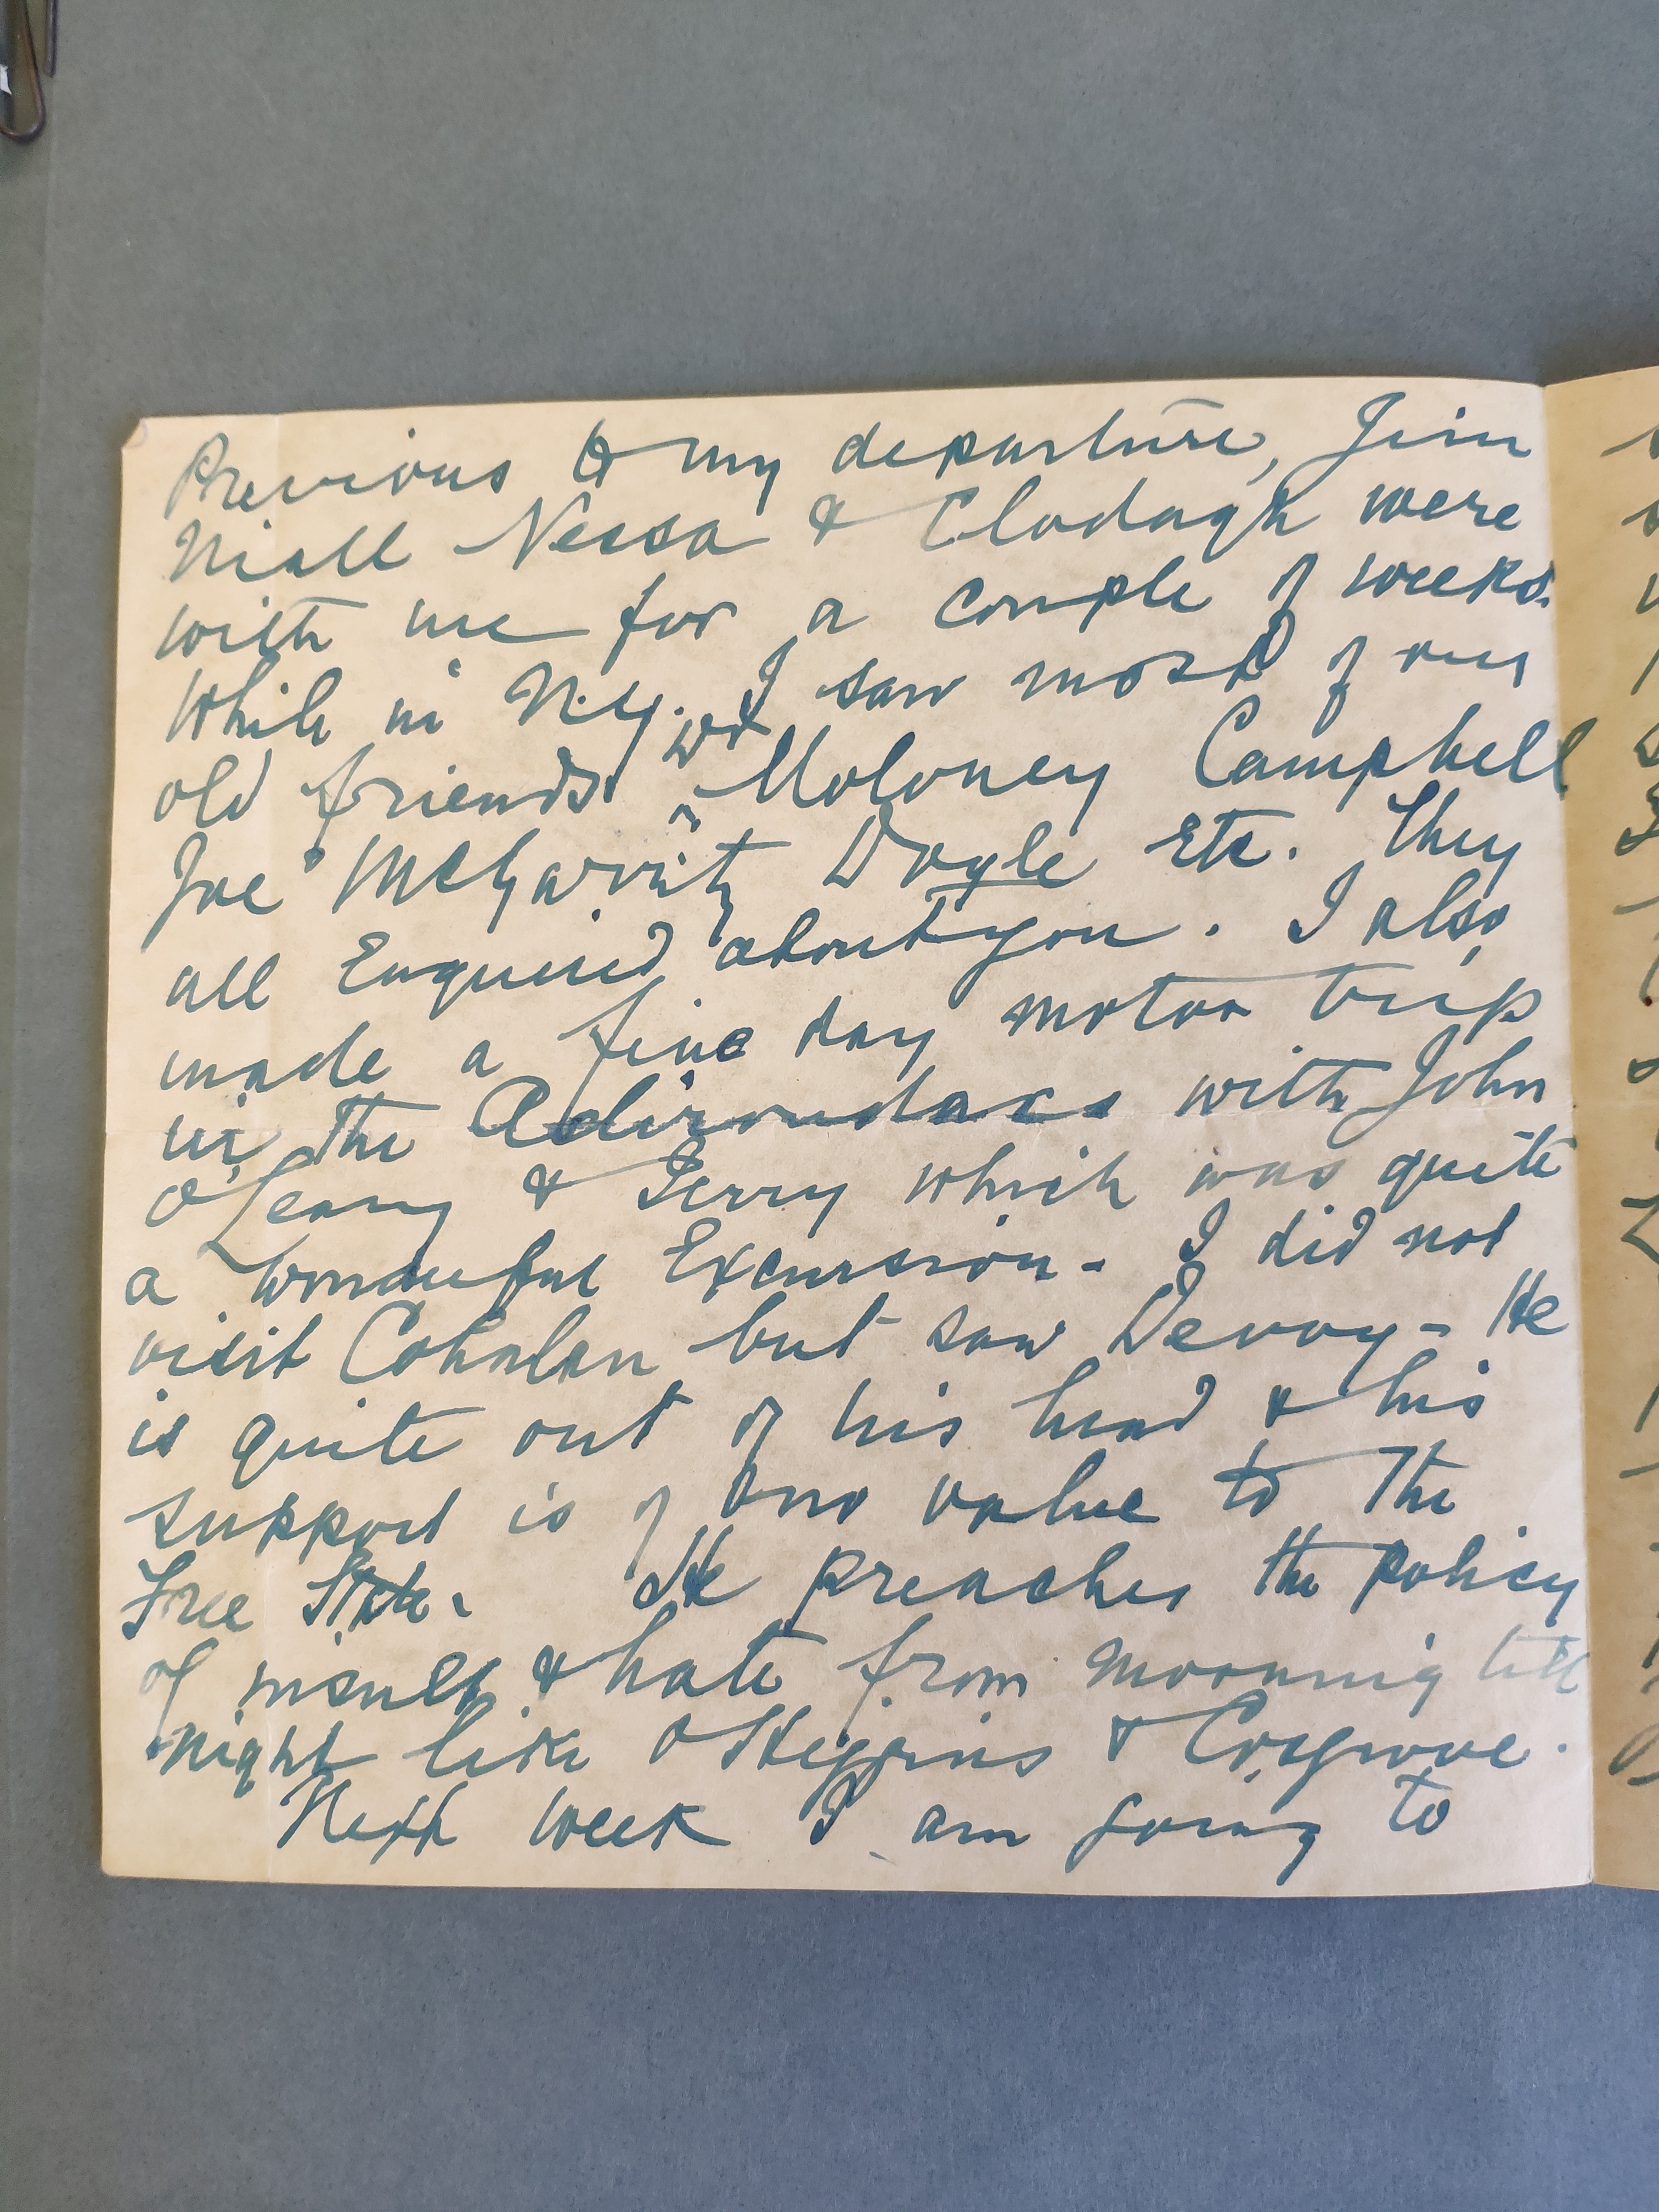 Previous to my departure, Jim
Niall Nessa & Clodagh were
with me for a couple of weeks.
While in N.Y. I saw most of our
old friends Dr Moloney Campbell
Joe McGarrity Doyle Etc. They
all Enquired about you. I also
made a fine day motor trip
in the Adirondacs with John
O'Leary & Gerry which was quite
a wonderful Excursion - I did not
visit Cohalan but saw Devoy - He
is quite out of his head & his
support is of no value to the
Free State. He preaches the policy
of insult & hate from morning till
night like O'Higgins & Cosgrove.
Next week I am going to